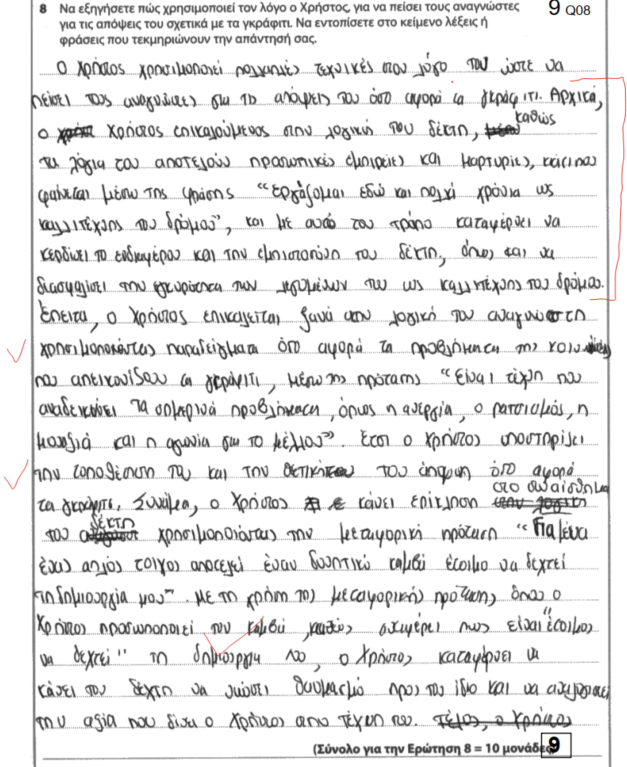 8 Να εξηγήσετε πώς χρησιμοποιεί τον λόγο ο Χρήστος, για να πείσει τους αναγνώστες
9 Q08
για τις απόψεις του σχετικά με τα γκράφιτι. Να εντοπίσετε στο κείμενο λέξεις ή
φράσεις που τεκμηριώνουν την απάντησή σας.
Ο Χρήστος χρησιμοποιεί πολλαπλές τεχνικές στον λόγο του ώστε να
πείσει τους αναγνώστες για το απόψεις του όσο αφορά τα γκράφιτι. Αρχικά,
ο Χρήστος επικαλούμενος στην λογική του δέκτη, καθώς
τα λόγια του αποτελούν προσωπικές εμπειρίες και μαρτυρίες, κάτι που
φαίνεται μέσω της φράσης "εργάζομαι εδώ και πολλά χρόνια ως
καλλιτέχνης του δρόμου", και με αυτό τον τρόπο καταφέρνει να
κερδίσει το ενδιαφέρον και την εμπιστοσύνη του δέκτη, όπως και να
διασφαλίσει την εγκυρότητα των λεγομένων του ως καλλιτέχνης του δρόμου.
Έπειτα, ο Χρήστος επικαλείται ξανά στην λογική του αναγνώστη
χρησιμοποιώντας παραδείγματα όσο αφορά τα προβλήματα της
που απεικονίζουν τα γκράφιτι, μέσω της πρότασης "είναι τέχνη που
αναδεικνύει τα σημερινά προβλήματα, όπως η ανεργία, ο ρατσισμός, η
μοναξιά και η αγωνία για το μέλλον". Έτσι ο Χρήστος υποστηρίζει
την τοποθέτηση του και την του άποψη όσο αφορά
τα γκράφιτι. Συνάμα, ο Χρήστος κάνει επίκληση στο συναίσθημα
του δέκτη χρησιμοποιώντας την μεταφορική πρόταση "Για μένα
ένας απλός τοίχος αποτελεί έναν δυνητικό καμβά έτοιμο να δεχτεί
τη δημιουργία μου". Με τη χρήση της μεταφορικής πρότασης όπου ο
Χρήστος προσωποποιεί τον καμβά, καθώς αναφέρει πως είναι "έτοιμος
να δεχτεί" τη δημιουργία του, ο Χρήστος καταφέρνει να
κάνει τον δέκτη να νιώσει θαυμασμό προς τον ίδιο και να
την αξία που δίνει ο Χρήστος στην τέχνη του. Τέλος, ο Χρήστος
(Σύνολο για την Ερώτηση 8 = 10 μονάδες)
9